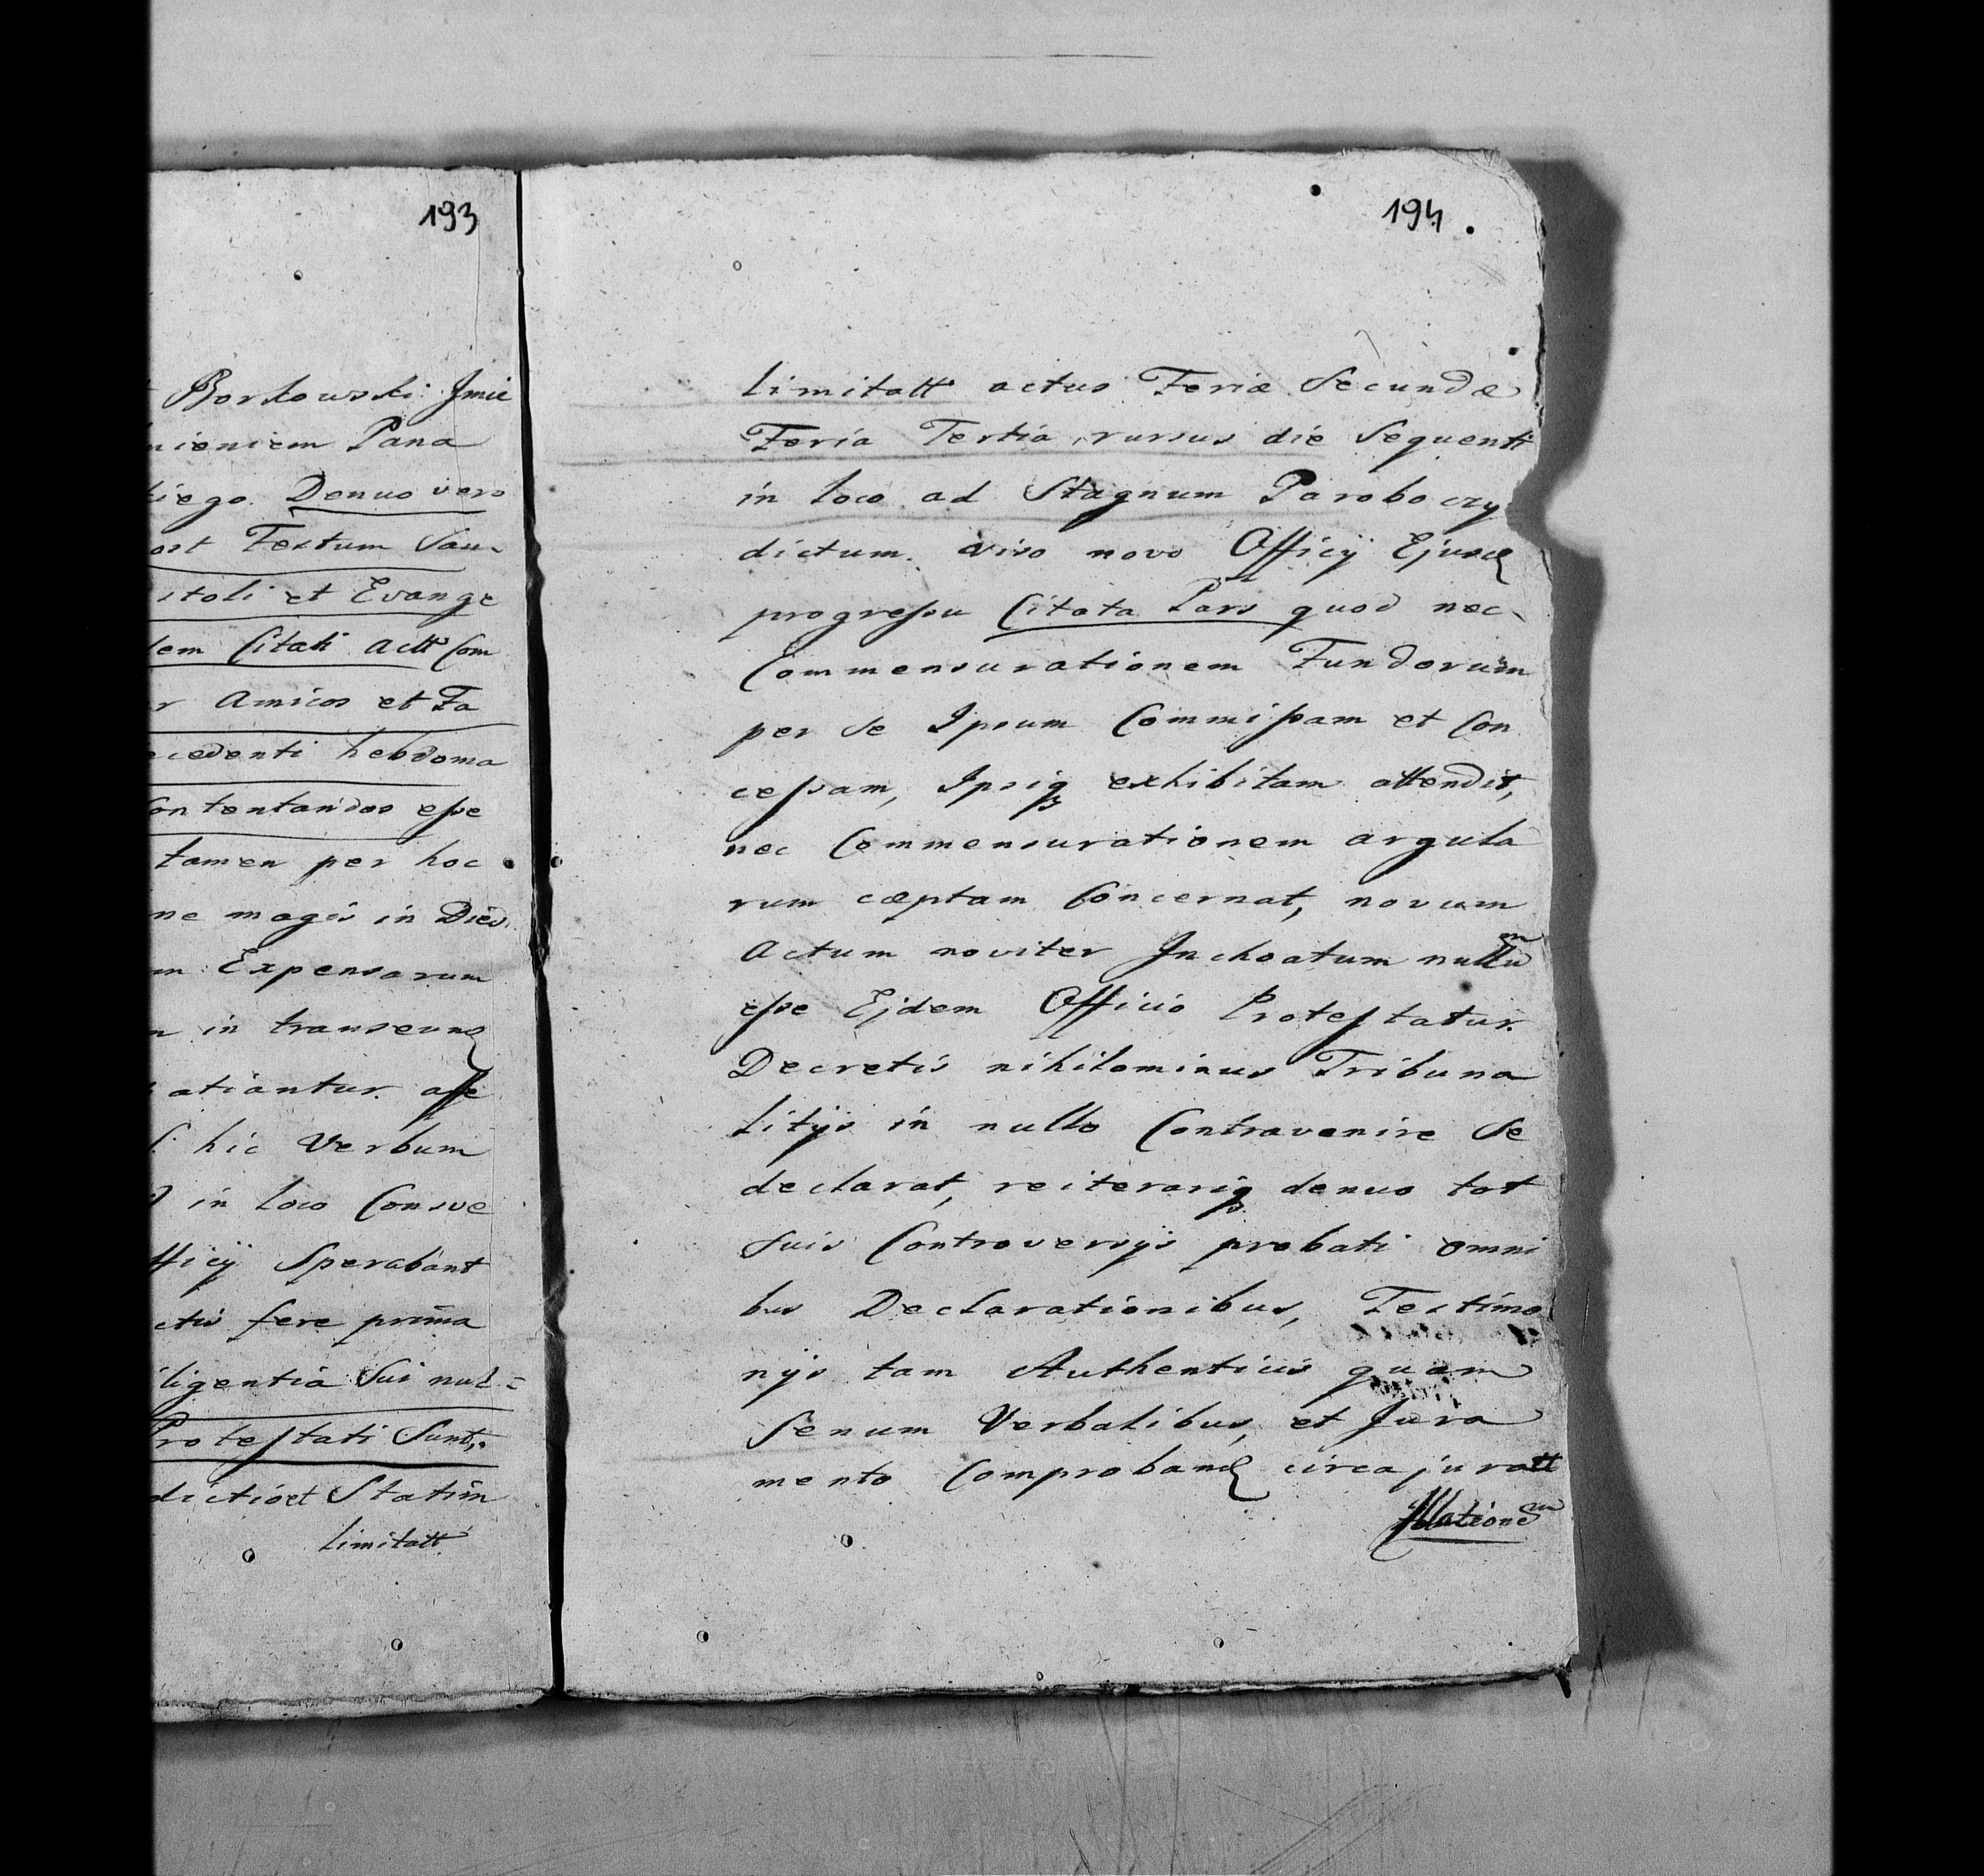 193
Borkowski Jmie
mieniem Pana
kiego. Denuo vero
ost Festum San
stoli et Evange
dem Citati actt Com
r Amicos et Fa
ecedenti hebdoma
Contentandos eſse
tamen per hoc
ne magis in Dies
m Expensarum
n in transeund
atiantur. aſſe
hic Verbum
in loco Consve
fficÿ Sperabant
ctis fere prima
iligentia Sui nul=
Proteſtati Sunt,
dictio et Statim
limitatt
194.
limitatt actus Feriæ Secundæ
Feria Tertia, rursus die Sequenti
in loco ad Stagnum Paroboczy
dictum. viso novo Officÿ Ejusd
progreſsu Citata Pars quod nec
Commensurationem Fundorum
per Se Ipsum Commiſsam et Con
ceſsam, Ipsiq exhibitam attendit,
nec Commensurationem argula
rum cæptam Concernat, novum
Actum noviter Inchoatum nullum
eſse Ejdem Officio Proteſtatur.
Decretis nihilominus Tribuna
litÿs in nullo Contravenire Se
declarat, reiterariq denuo tot
Suis Controversÿs probati omni
bus Declarationibus, Testimo
nÿs tam Authenticis quam
Senum Verbalibus, et Jura
mento Comproband circa juratt
Illationem